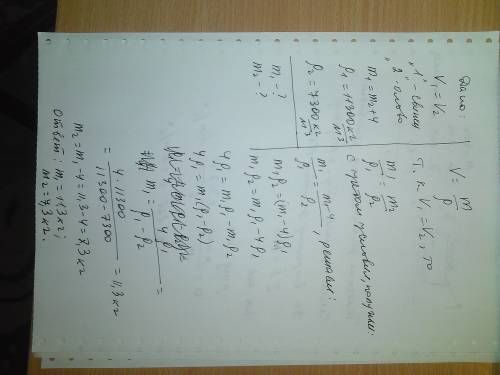 Дано:
V₁ = V₂
"1" - свинец
"2" - олово
m₁ = m₂ + 4
ρ₁ = 11300 кг/м³
ρ₂ = 7300 кг/м³
m₁ - ?
m₂ - ?
V = m/ρ
Т. к V₁ = V₂, то
m₁/ρ₁ = m₂/ρ₂
с учётом условия, получим:
m₁/ρ₁ = (m₁-4)/ρ₂, решаем:
m₁ρ₂ = (m₁-4)ρ₁
m₁ρ₂ = m₁ρ₁ - 4ρ₁
4ρ₁ = m₁ρ₁ - m₁ρ₂
4ρ₁ = m₁(ρ₁-ρ₂)
m₁ = 4ρ₁/(ρ₁-ρ₂) =
= 4·11300/(11300-7300) = 11,3 кг
m₂ = m₁ - 4 = 11,3 - 4 = 7,3 кг
Ответ: m₁ = 11,3 кг;
m₂ = 7,3 кг.